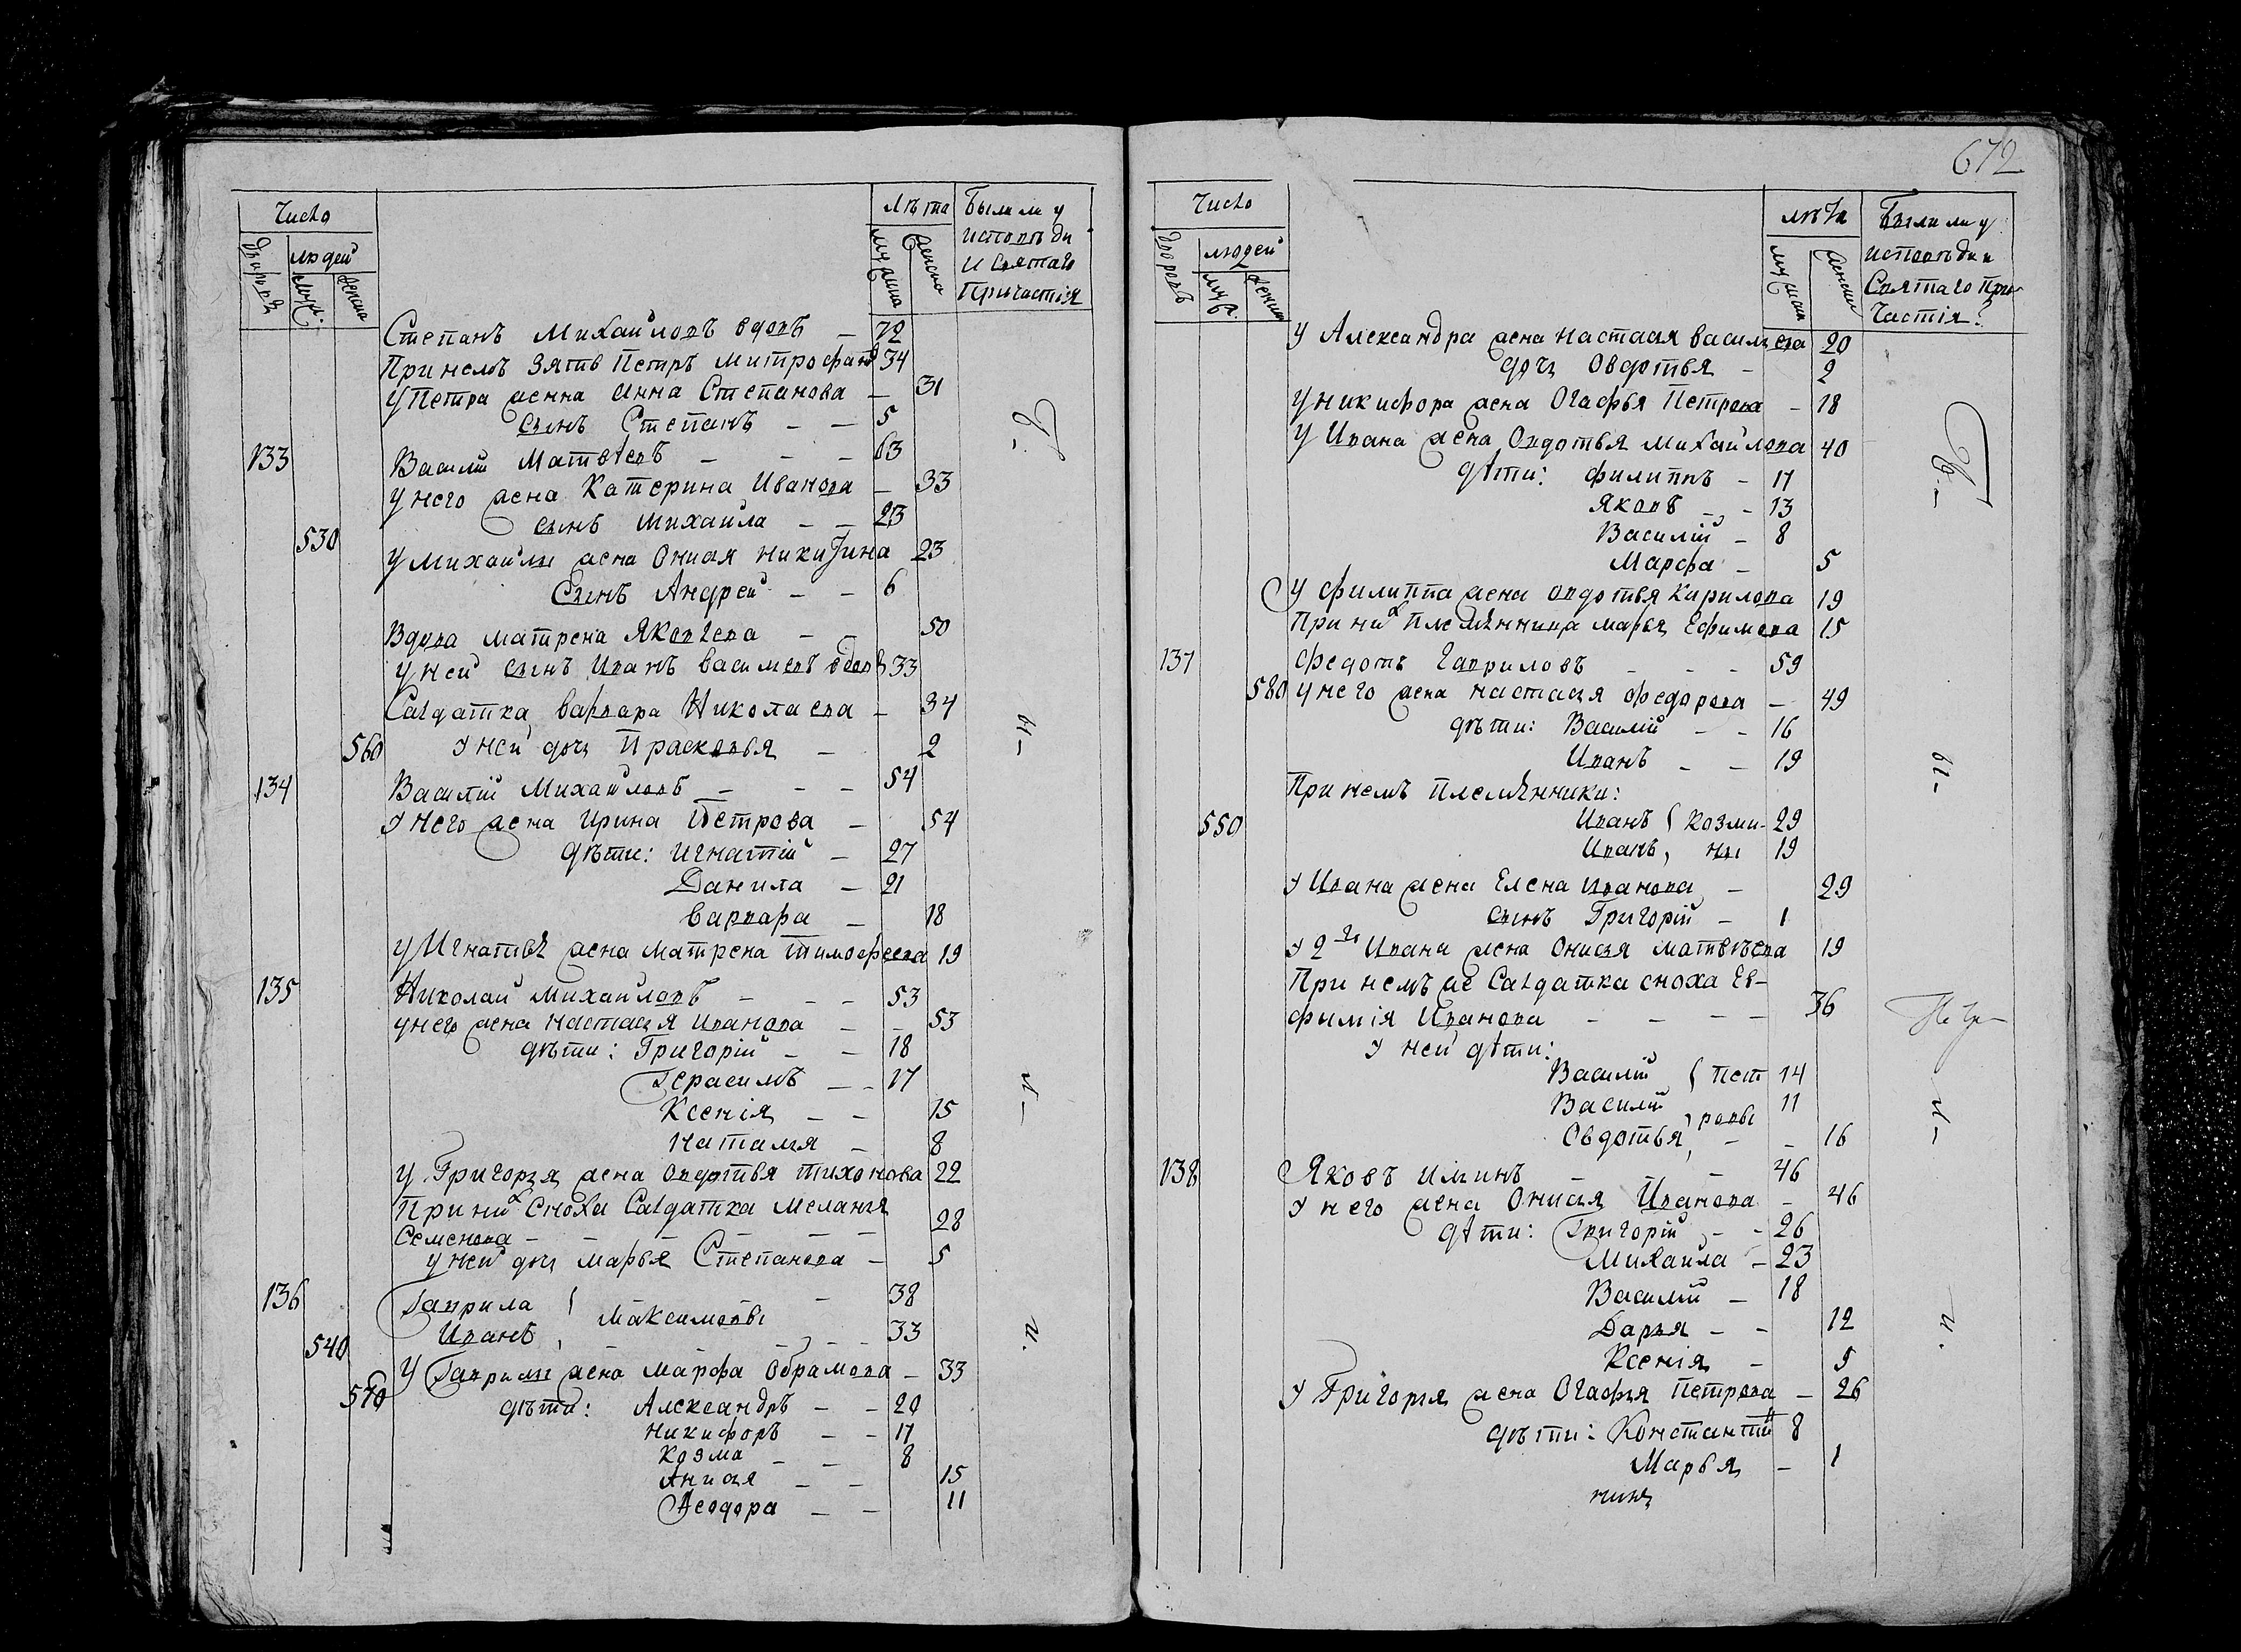 Число
лѣта
Были ли у
исповѣди
и святаго
Причастія
дворовъ
людей
муж.
женска
мужска
женска
Степанъ Михайловъ вдовъ — 72
При немъ зять Петръ Митрофановъ 34
У Петра жена Анна Степанова — 31
сынъ Степанъ — — 5
133 Василій Матвѣевъ — — — 63
у него жена Катерина Иванова — 33
сынъ Михайла — — 23
530
у Михайлы жена Онисья Никитина 23
Сынъ Андрей — — 6
Вдова Матрена Яковлева — — 50
у ней сынъ Иванъ Васильевъ вдовъ 33
Салдатка Варвара Николаева — 34
560 у ней дочь Прасковья — 2
134 Василій Михайловъ — — — 54
у него жена Ирина Петрова — 54
дѣти: Игнатій — 27
Данила — 21
Варвара — 18
у Игнатья жена Матрена Тимофеева 19
135 Николай Михайловъ — — — 53
у него жена Настасья Иванова — — 53
дѣти: Григорій — — 18
Герасимъ — — 17
Ксенія — — 15
Наталья — 8
у Григорья жена Овдотья Тихонова 22
При них сноха Салдатка Меланья
Семенова — — — — — 28
у ней дочь Марья Степанова — 5
136 Гаврила } — 38
Максимовы
540 Иванъ — — — 33
У Гаврилы жена Марфа Обрамова — 33
570 дѣти: Александръ — — 20
Никифоръ — — 17
Козма — — 8
Анисья — — 15
Ѳеодора — — 11
672
Число
лѣта
Были ли у
исповѣди и
Святаго При-
частія?
дворовъ
людей
муж.
женска
мужска
женска
У Александра жена Настасья Васильева 20
дочь Овдотья — 2
у Никифора жена Огафья Петрова — 18
у Ивана жена Овдотья Михайлова 40
дѣти: Филиппъ — 17
Яковъ — — 13
Василій — 8
Марфа — 5
у Филиппа жена Овдотья Кирилова 19
При них племѣнница Марья Ефимова 15
137 Федотъ Гавриловъ — — — 59
580 у него жена Настасья Федорова — 49
дѣти: Василій — — 16
Иванъ — — 19
При немъ племѣнники:
550 Иванъ } Козми- 29
Иванъ, ны 19
у Ивана жена Елена Иванова — 29
сынъ Григорій — 1
у 2го Ивана жена Онисья Матвѣева 19
При немъ же Салдатка сноха Ев-
фимія Иванова — — — — 36
у ней дѣти:
Василій } Пет 14
Василій ровы 11
Овдотья, — — 16
138 Яковъ Ильинъ — — 46
у него жена Онисья Иванова — 46
дѣти: Григорій — — 26
Михайла — 23
Василій — 18
Дарья — — 12
Ксенія — 5
у Григорья жена Огафья Петрова — 26
дѣти: Константинъ 8
Марья — 1